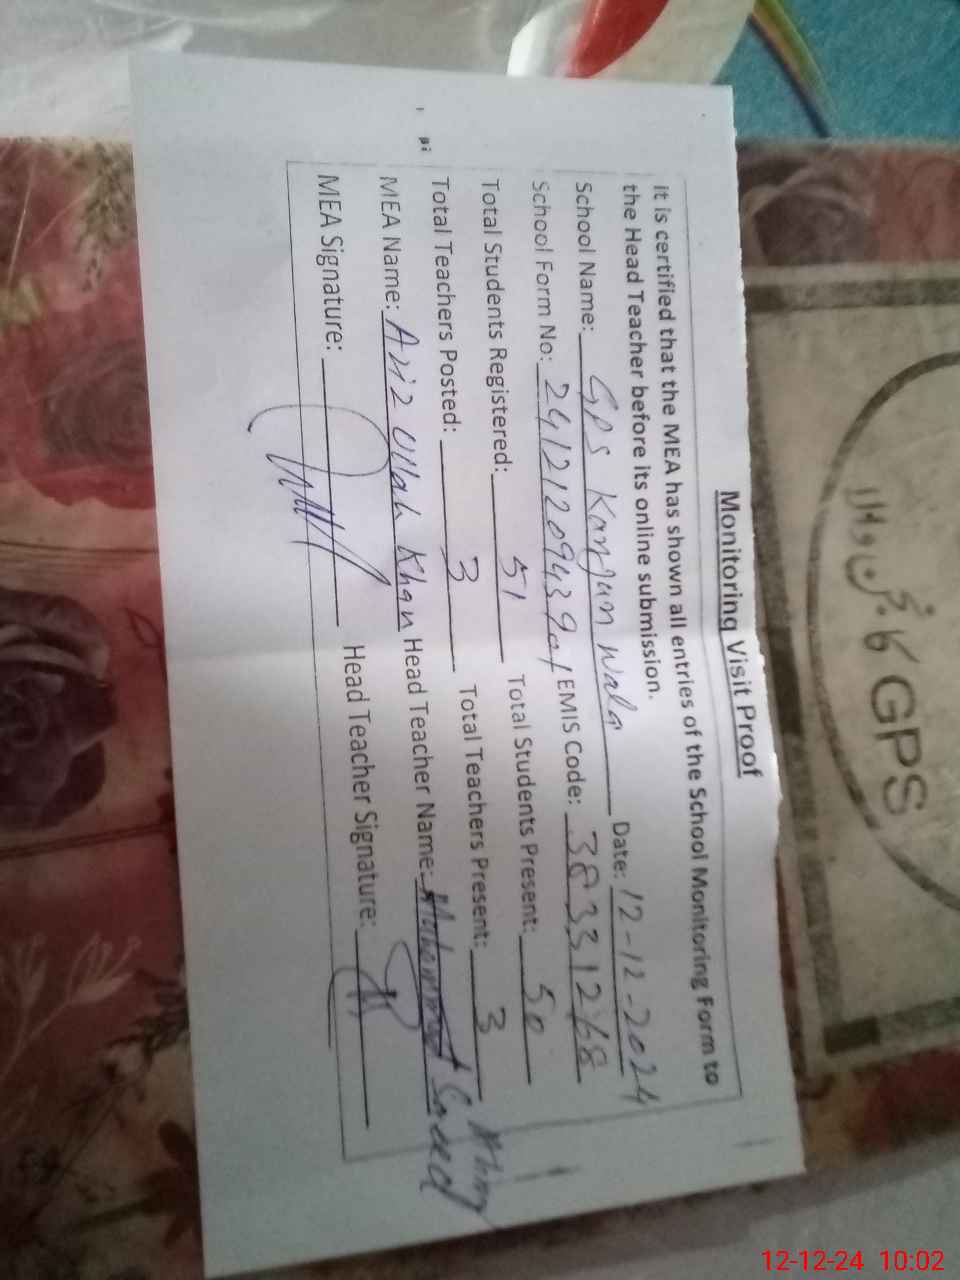 Monitoring Visit Proof
It is certified that the MEA has shown all entries of the School Monitoring Form to
the Head Teacher before its online submission.
School Name: GPS Kanjun Wala Date: 12-12-2024
School Form No: EMIS Code: 38331268
Total Students Registered: 51 Total Students Present: 50
Total Teachers Posted: 3 Total Teachers Present: 3
MEA Name: Aziz Ullah Khan Head Teacher Name: Muhammad Saeed
MEA Signature: Head Teacher Signature:
GPS
12-12-24 10:02